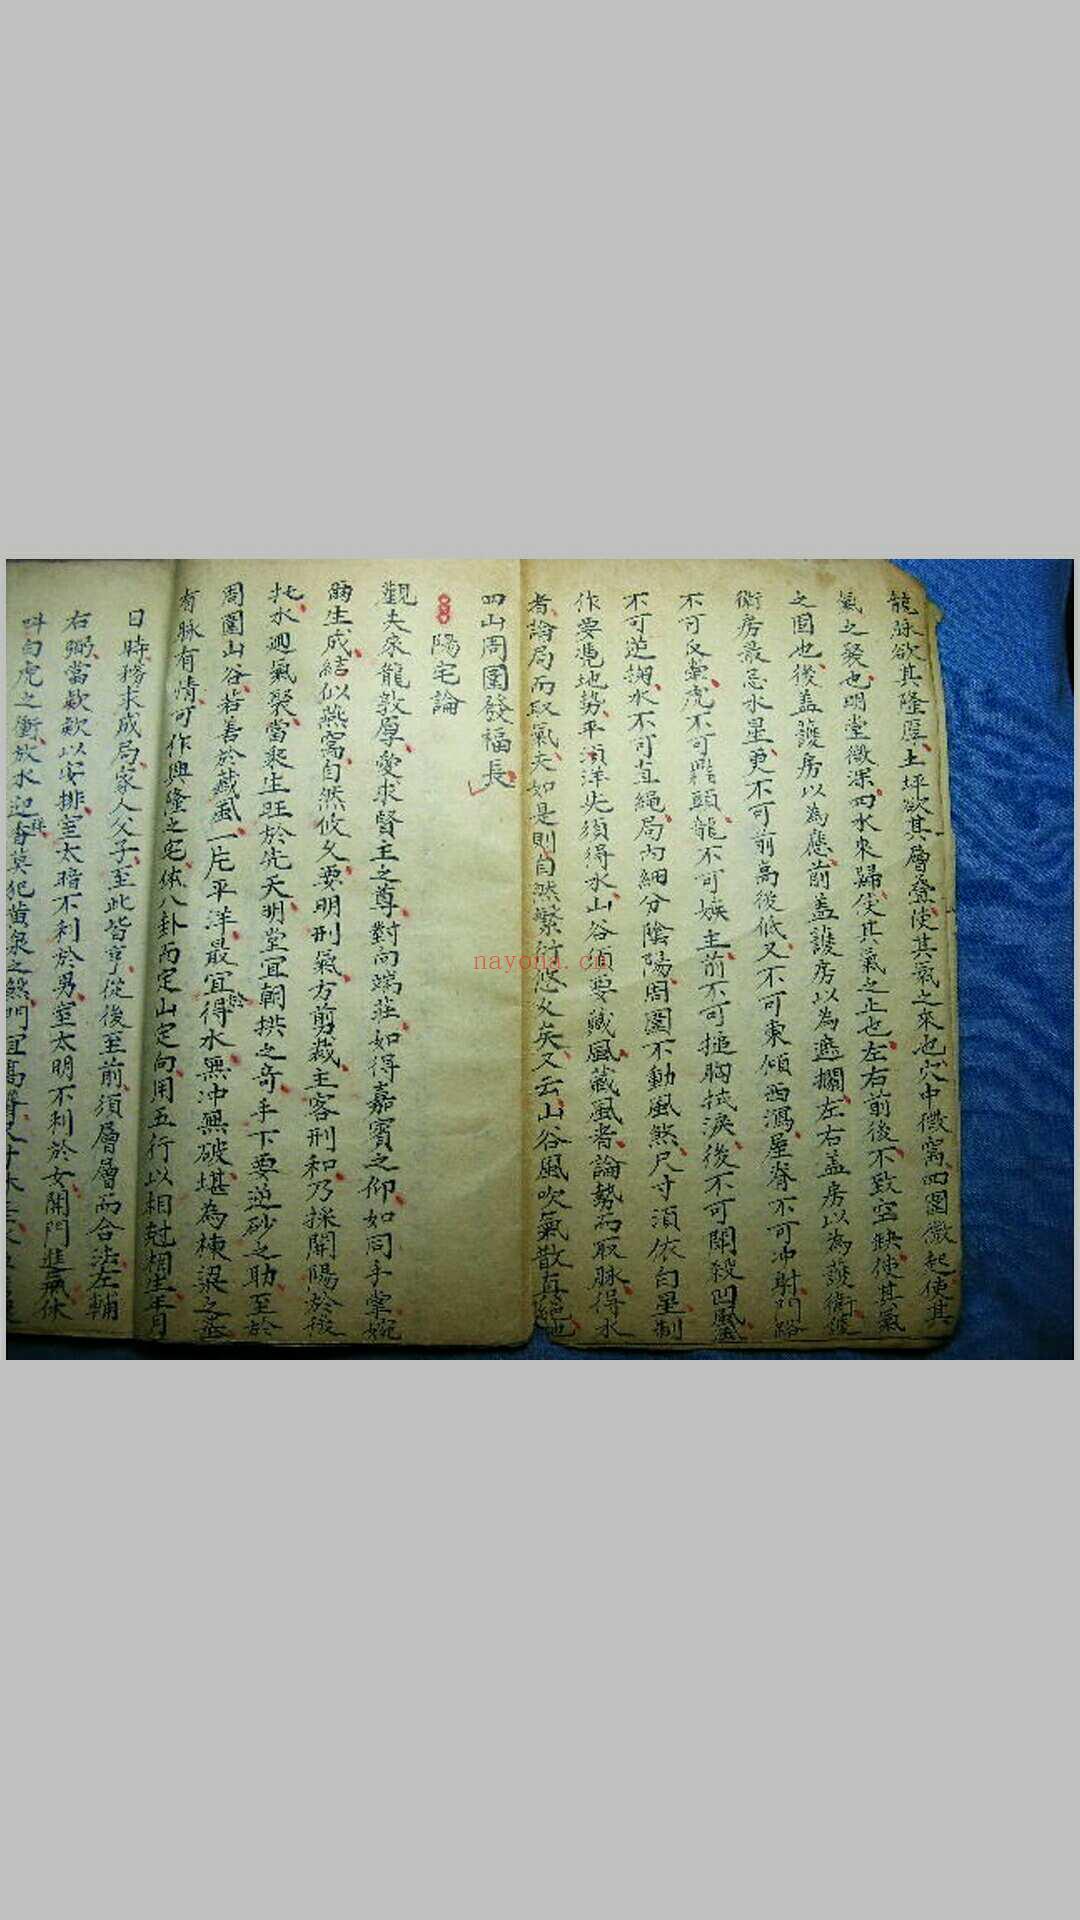 龍脉欲其隆厚土坪欲其層登使其氣之來也穴中微窩四圍微起使其
氣之聚也明堂微深四水來歸使其氣之止也左右前後不致空缺使其氣
之固也後盖護房以為應前盖護房以為遮攔左右盖房以為護衛護
衛房最忌水星更不可前高後低又不可東傾西瀉屋脊不可冲射門路
不可反弓虎不可昂頭龍不可嫉主前不可搥胸拭淚後不可開殺凹風
不可逆拗水不可直繩局內細分陰陽周圍不動風煞尺寸須依白星制
作要憑地勢平須洋先須得水山谷須要藏風藏風者論勢而取脉得水
者論局而取氣夫如是則自然繁衍悠久矣又云山谷風吹氣散真絕地
四山周圍發福長
陽宅論
觀夫來龍敦厚愛求賢主之尊對向端莊如得嘉賓之仰如同手掌婉
生成結似燕窩自然攸久要明刑氣方剪裁主客刑和乃採開陽於後
水迴氣聚當聚生旺於先天明堂宜朝拱之奇手下要逆砂之助至於
周圍山谷若善於藏風一片平洋最宜於得水無冲無破堪為棟梁之基
有脉有情可作興隆之宅体八卦而定山定向用五行以相尅相生年月
日時務求成局家人父子至此皆亨從後至前須層層而合法左輔
右弼當欵欵以安排室太暗不利於男室太明不利於女開門進氣休
白虎之衝放水莫犯黃泉之煞門宜高
nayona.cn